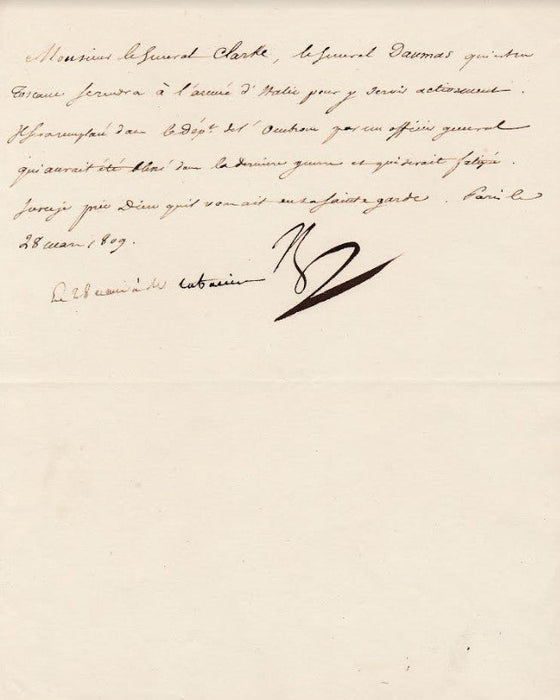 Monsieur le General Clarke, le General Daumas qui est en
Toscane se rendra à l'armée d'Italie pour y servir activement.
Il sera remplacé dans le Dépt. de l'Ombrone par un officier general
qui aurait été blessé dans la derniere guerre et qui serait fatigué.
Sur ce je prie Dieu qu'il vous ait en sa sainte garde. Paris le
28 mars 1809.
Le 28 mars à